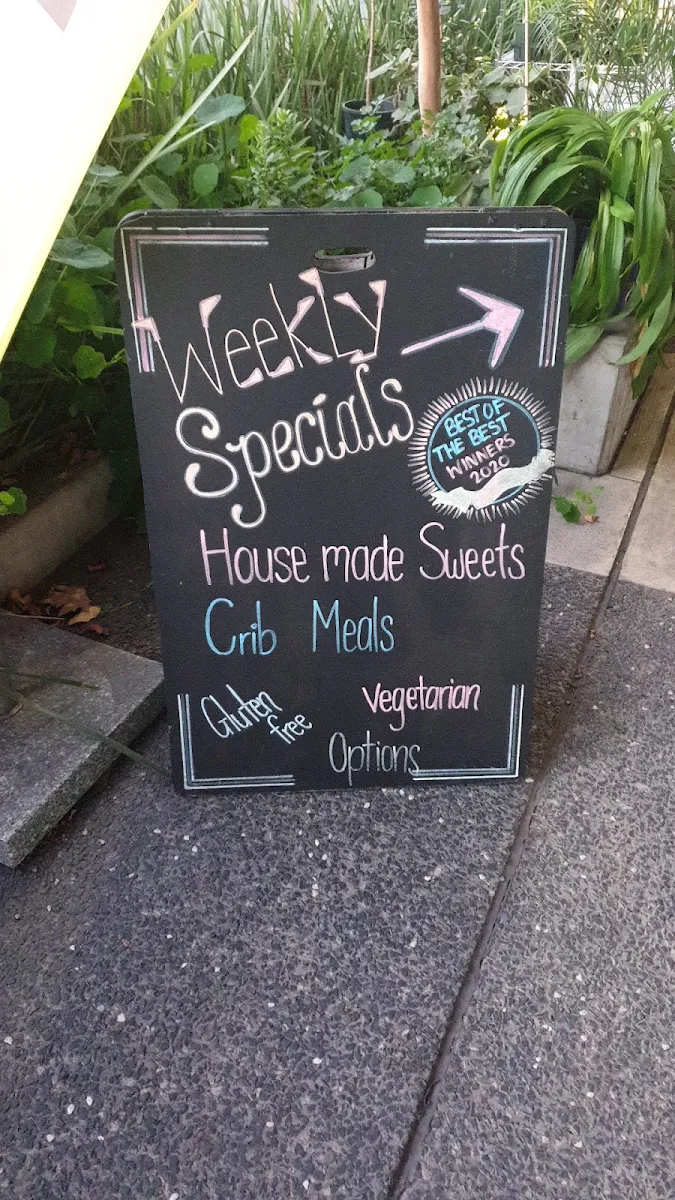 Weekly
Specials
BEST OF
THE BEST
WINNERS
2020
House made Sweets
Crib Meals
Gluten
free
Vegetarian
Options